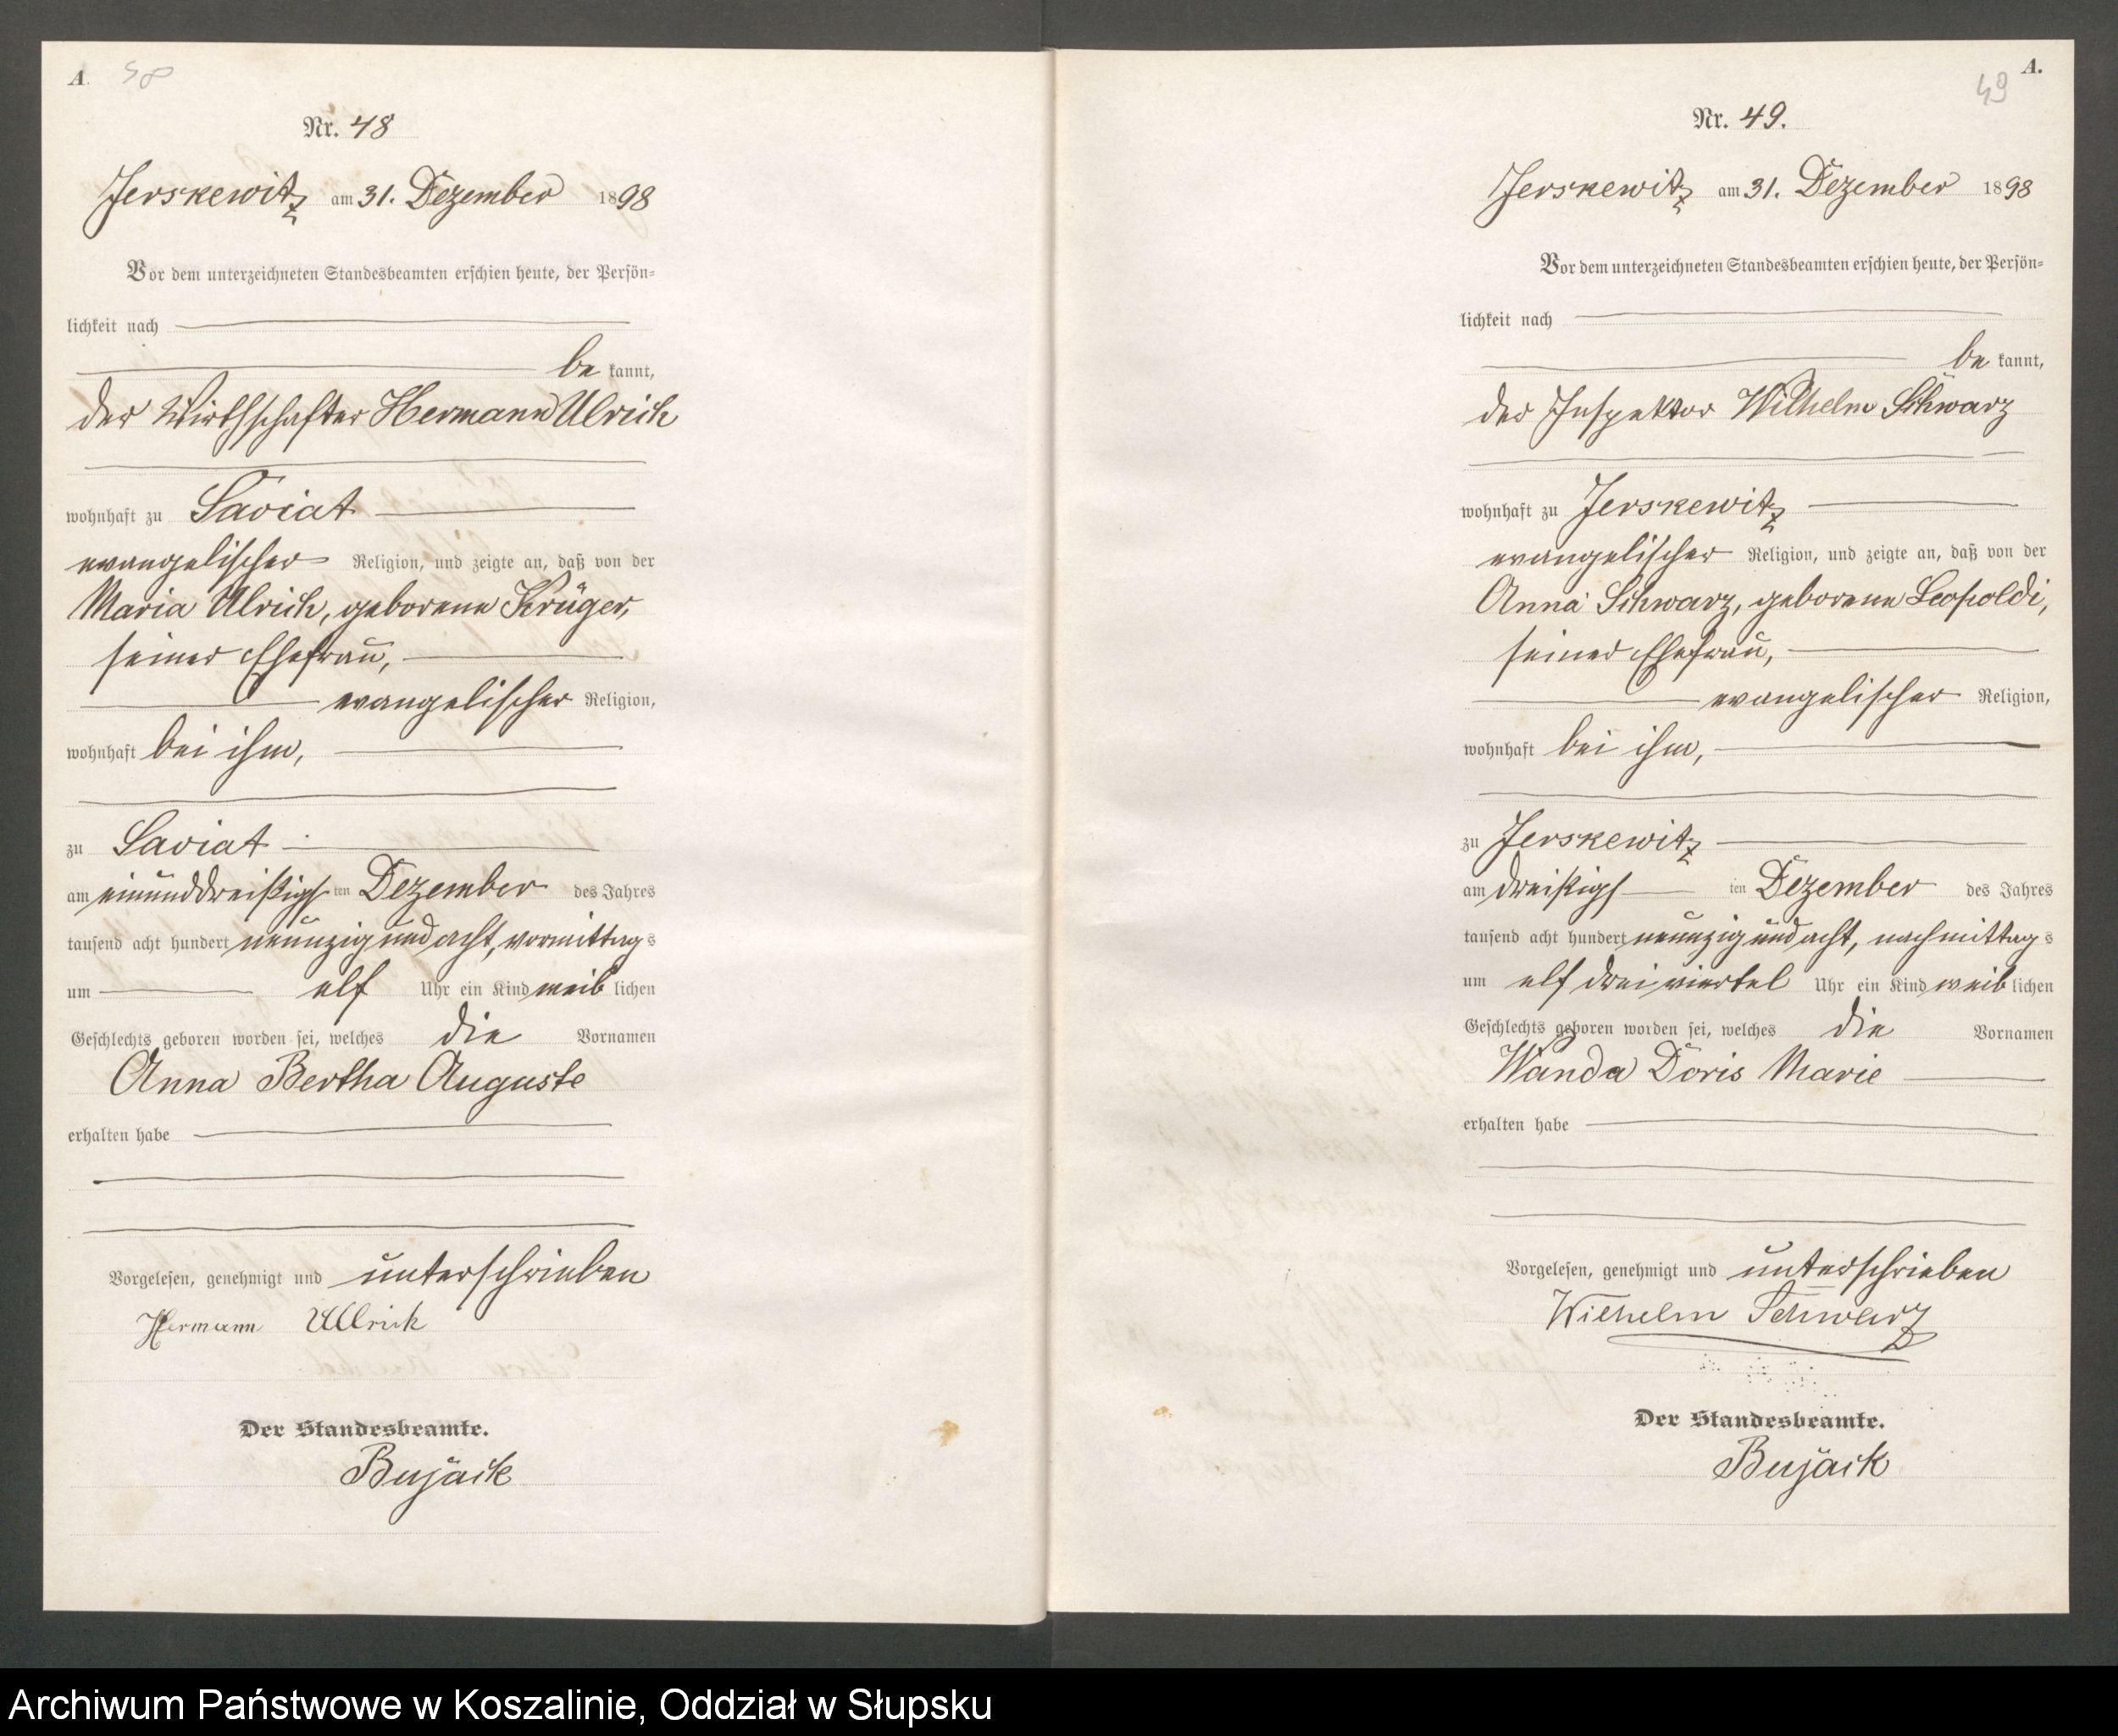 A. 48
Nr. 48
Jerskewitz am 31. Dezember 1898
Vor dem unterzeichneten Standesbeamten erschien heute, der Persön-
lichkeit nach
be kannt,
der Wirthschafter Hermann Ulrich
wohnhaft zu Saviat
evangelischer Religion, und zeigte an, daß von der
Maria Ulrich, geborene Krüger,
seiner Ehefrau,
evangelischer Religion,
wohnhaft bei ihm,
zu Saviat
am einunddreißigs ten Dezember des Jahres
tausend acht hundert neunzig und acht, vormittag s
um elf Uhr ein Kind weib lichen
Geschlechts geboren worden sei, welches die Vornamen
Anna Bertha Auguste
erhalten habe
Vorgelesen, genehmigt und unterschrieben
Hermann Ullrich
Der Standesbeamte.
Bujack
A.
49
Nr. 49.
Jerskewitz am 31. Dezember 1898
Vor dem unterzeichneten Standesbeamten erschien heute, der Persön-
lichkeit nach
be kannt,
der Inspektor Wilhelm Schwarz
wohnhaft zu Jerskewitz
evangelischer Religion, und zeigte an, daß von der
Anna Schwarz, geborene Leopoldi,
seiner Ehefrau,
evangelischer Religion,
wohnhaft bei ihm,
zu Jerskewitz
am dreißigs ten Dezember des Jahres
tausend acht hundert neunzig und acht, nachmittag s
um elf dreiviertel Uhr ein Kind weib lichen
Geschlechts geboren worden sei, welches die Vornamen
Wanda Doris Marie
erhalten habe
Vorgelesen, genehmigt und unterschrieben
Wilhelm Schwarz
Der Standesbeamte.
Bujack
Archiwum Państwowe w Koszalinie, Oddział w Słupsku